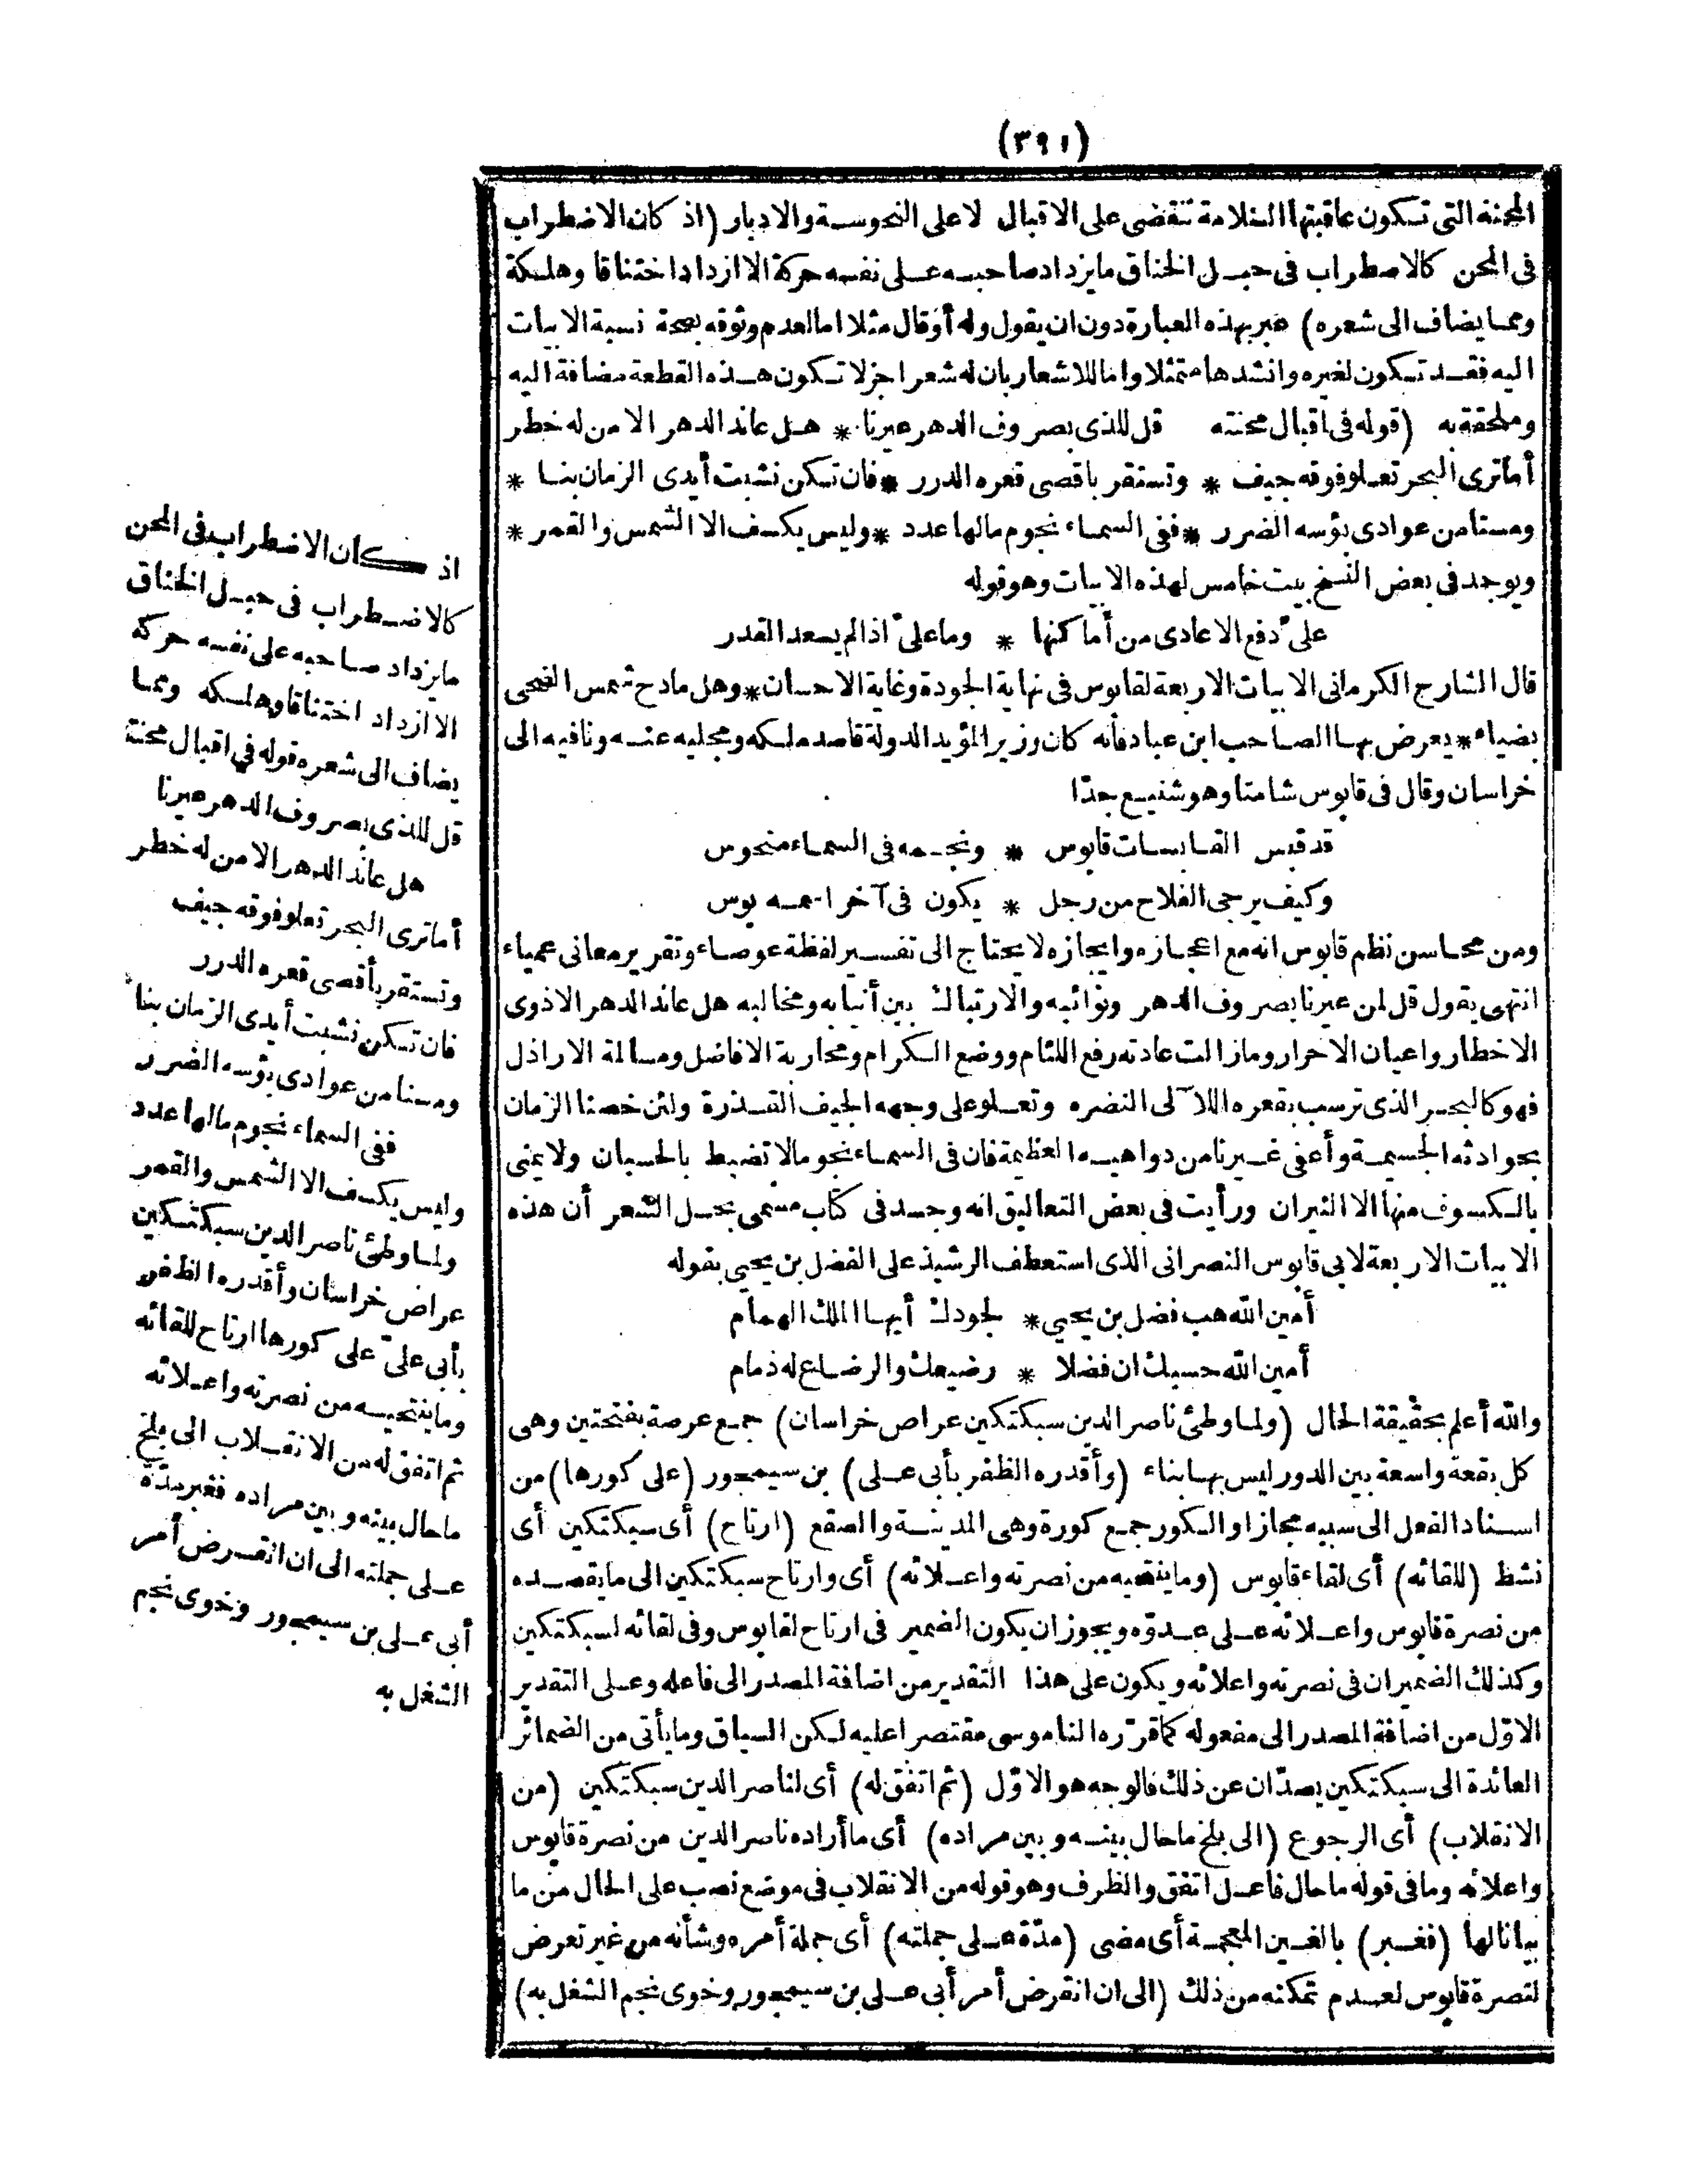 (٣٩١)
المحنة التي تكون عاقبتها السلامة تنقضى على الاقبال لا على النحوسة والادبار (اذ كان الاضطراب
فى المحن كالاضطراب فى حبل الخناق مايزداد صاحبه على نفسه حركة الا ازداد اختناقا وهلكة
ومما يضاف الى شعره) عبر بهذه العبارة دون ان يقول وله أو قال مثلا اما لعدم وثوقه بصحة نسبة الابيات
اليه فقد تكون لغيره وانشدها متمثلا واما للاشعار بان له شعرا جزلا تكون هذه القطعة مضافة اليه
وملحقة به (قوله فى اقبال محنته قل للذى بصروف الدهر عيرنا * هل عاند الدهر الا من له خطر
أماترى البحر تعلو فوقه جيف * وتستقر باقصى قعره الدرر * فان تكن نشبت أيدى الزمان بنا *
ومسنا من عوادى بؤسه الضرر * ففى السماء نجوم مالها عدد * وليس يكسف الا الشمس والقمر *
ويوجد فى بعض النسخ بيت خامس لهذه الابيات وهو قوله
علىّ دفع الاعادى من أماكنها * وما علىّ اذا لم يسعد القدر
قال الشارح الكرمانى الابيات الاربعة لقابوس فى نهاية الجودة وغاية الاحسان * وهل مادح شمس الضحى
بضياء * يعرض بها الصاحب ابن عباد فانه كان وزير المؤيد الدولة قاصد ملكه ومجليه عنه ونافيه الى
خراسان وقال فى قابوس شامتا وهو شنيع جدّا
قد قبس القابسات قابوس * ونجمه فى السماء منحوس
وكيف يرجى الفلاح من رجل * يكون فى آخر اسمه بوس
ومن محاسن نظم قابوس انه مع اعجازه وايجازه لا يحتاج الى تفسير لفظة عوصاء وتقرير معانى عمياء
انتهى يقول قل لمن عيرنا بصروف الدهر ونوائبه والارتباك بين أنيابه ومخالبه هل عاند الدهر الا ذوى
الاخطار واعيان الاحرار ومازالت عادته رفع اللئام ووضع الكرام ومحاربة الافاضل ومسالمة الاراذل
فهو كالبحر الذى ترسب بقعره اللآلى النضره وتعلو على وجهه الجيف القذرة ولئن خصنا الزمان
بحوادثه الجسيمة وأعفى غيرنا من دواهيه العظيمة فان فى السماء نجوما لا تضبط بالحسبان ولا يمنى
بالكسوف منها الا النيران ورأيت فى بعض التعاليق انه وجد فى كتاب مسمى بحل الشعر أن هذه
الابيات الاربعة لابى قابوس النصرانى الذى استعطف الرشيد على الفضل بن يحيى بقوله
أمين الله هب فضل بن يحيى * لجودك أيها الملك الهمام
أمين الله حسبك ان فضلا * رضيعك والرضاع له ذمام
والله أعلم بحقيقة الحال (ولما وطئ ناصر الدين سبكتكين عراص خراسان) جمع عرصة بفتحتين وهى
كل بقعة واسعة بين الدور ليس بها بناء (وأقدره الظفر بأبى على) بن سيمجور (على كورها) من
اسناد الفعل الى سببه مجازا والكور جمع كورة وهى المدينة والصقع (ارتاح) أى سبكتكين أى
نشط (للقائه) أى لقاء قابوس (وما ينتحيه من نصرته واعلائه) أى وارتاح سبكتكين الى ما يقصده
من نصرة قابوس واعلائه على عدوّه ويجوز ان يكون الضمير فى ارتاح لقابوس وفى لقائه لسبكتكين
وكذلك الضميران فى نصرته واعلائه ويكون على هذا التقدير من اضافة المصدر الى فاعله وعلى التقدير
الاوّل من اضافة المصدر الى مفعوله كما قرّره الناموسى مقتصرا عليه لكن السياق وما يأتى من الضمائر
العائدة الى سبكتكين يصدّان عن ذلك فالوجه هو الاوّل (ثم اتفق له) أى لناصر الدين سبكتكين (من
الانقلاب) أى الرجوع (الى بلخ ماحال بينه وبين مراده) أى ما أراده ناصر الدين من نصرة قابوس
واعلائه وما فى قوله ماحال فاعل اتفق والظرف وهو قوله من الانقلاب فى موضع نصب على الحال من ما
بيانا لها (فغبر) بالغين المعجمة أى مضى (مدّة على جملته) أى جملة أمره وشأنه من غير تعرض
لنصرة قابوس لعدم تمكنه من ذلك (الى ان انقرض أمر أبى على بن سيمجور وخوى نجم الشغل به)
اذ كان الاضطراب فى المحن
كالاضطراب فى حبل الخناق
مايزداد صاحبه على نفسه حركة
الا ازداد اختناقا وهلكه ومما
يضاف الى شعره قوله فى اقبال محنته
قل للذى بصروف الدهر عيرنا
هل عاند الدهر الا من له خطر
أماترى البحر تعلو فوقه جيف
وتستقر بأقصى قعره الدرر
فان تكن نشبت أيدى الزمان بنا
ومسنا من عوادى بؤسه الضرر
ففى السماء نجوم مالها عدد
وليس يكسف الا الشمس والقمر
ولما وطئ ناصر الدين سبكتكين
عراص خراسان وأقدره الظفر
بأبى علىّ على كورها ارتاح للقائه
وما ينتحيه من نصرته واعلائه
ثم اتفق له من الانقلاب الى بلخ
ماحال بينه وبين مراده فغبر مدّة
على جملته الى ان انقرض أمر
أبى على بن سيمجور وخوى نجم
الشغل به